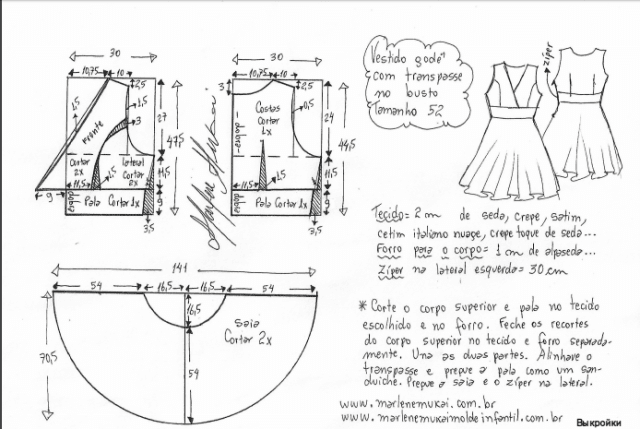 30
10,75
10
2,5
1,5
1,5
3
27
47,5
Frente
Cortar
2x
lateral
Cortar
2x
11,5
11,5
1,5
dobra
Pala Cortar 1x
9
9
3,5
30
10,75
10
3
2,5
0,5
24
44,5
Costas
Cortar
1x
dobra
11,5
11,5
1,5
dobra
Pala Cortar 1x
9
3,5
Vestido godê
com transpasse
no busto
Tamanho 52
zíper
Tecido= 2 m de seda, crepe, satim,
cetim italiano nuage, crepe toque de seda...
Forro para o corpo= 1 m de alpaseda...
Zíper na lateral esquerda= 30 cm
141
54
16,5
16,5
54
16,5
70,5
54
Saia
Cortar 2x
* Corte o corpo superior e pala no tecido
escolhido e no forro. Feche os recortes
do corpo superior no tecido e forro separada-
mente. Una as duas partes. Alinhave o
transpasse e pregue a pala como um san-
duíche. Pregue a saia e o zíper na lateral.
www.marlenemukai.com.br
www.marlenemukaimoldeinfantil.com.br
Выкройки